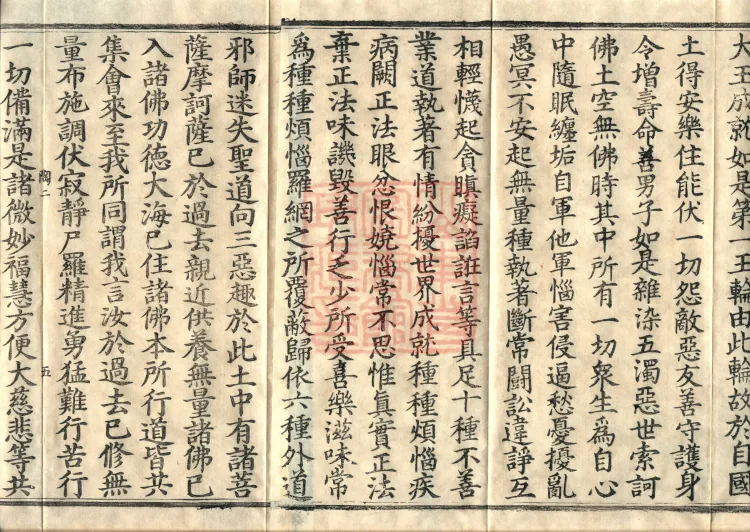 大王成就如是第一王輪由此輪故於自國
土得安樂住能伏一切怨敵惡友善守護身
令增壽命善男子如是雜染五濁惡世索訶
佛土空無佛時其中所有一切衆生爲自心
中隨眠纏垢自軍他軍惱害侵逼愁憂擾亂
愚冥不安起無量種執著斷常鬪訟違諍互
相輕懱起貪瞋癡諂誑言等具足十種不善
業道執著有情紛擾世界成就種種煩惱疾
病闕正法眼忿恨嬈惱常不思惟真實正法
棄正法味譏毀善行乏少所受喜樂滋味常
爲種種煩惱羅網之所覆蔽歸依六種外道
邪師迷失聖道向三惡趣於此土中有諸菩
薩摩訶薩已於過去親近供養無量諸佛已
入諸佛功德大海已住諸佛本所行道皆共
集會來至我所同謂我言汝於過去已修無
量布施調伏寂靜尸羅精進勇猛難行苦行
陶二 五
一切備滿是諸微妙福慧方便大慈悲等共